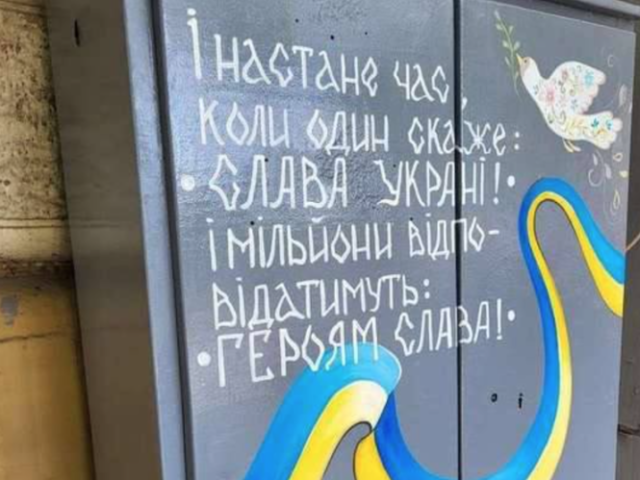 І НАСТАНЕ ЧАС,
КОЛИ ОДИН СКАЖЕ:
•СЛАВА УКРАНІ!•
І МІЛЬЙОНИ ВІДПО-
ВІДАТИМУТЬ:
•ГЕРОЯМ СЛАВА!•